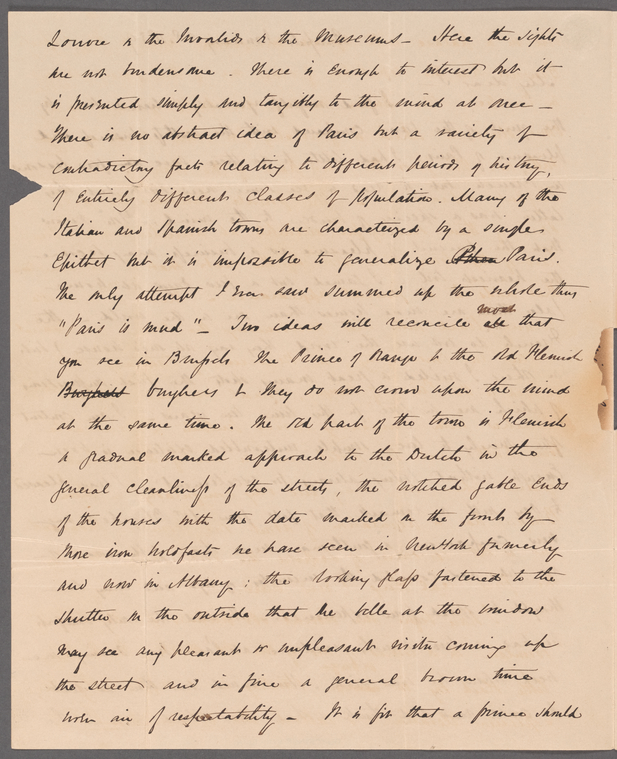 Louvre & the Invalids & the Museums – Here the sights
are not burdensome. There is enough to interest but it
is presented simply and tangibly to the mind at once –
There is no abstract idea of Paris but a variety of
contradictory facts relating to different periods of history,
of entirely different classes of population. Many of the
Italian and Spanish towns are characterized by a single
Epithet but it is impossible to generalize Paris.
The only attempt I ever saw summed up the whole thus
"Paris is mud" – Two ideas will reconcile
most
all that
you see in Brussels the Prince of Orange & the old Flemish
burghers & they do not crowd upon the mind
at the same time. The old part of the town is Flemish
a gradual marked approach to the Dutch in the
general cleanliness of the streets, the notched gable ends
of the houses with the date marked on the fronts by
those iron holdfasts we have seen in New York formerly
and now in Albany; the looking glass fastened to the
shutter on the outside that the belle at the window
may see any pleasant or unpleasant visitor coming up
the street and in fine a general brown time
worn air of respectability – It is fit that a prince should